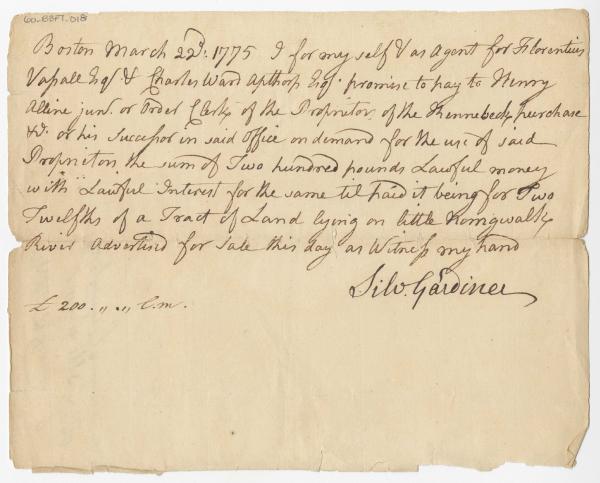 60-BBFT.018
Boston March 22d: 1775 I for my self & as Agent for Florentius
Vassall Esqr & Charles Ward Apthorp Esqr. promise to pay to Henry
Alline junr. or Order Clerk of the Proprietors of the Kennebeck purchase
&c. or his Successor in said Office on demand for the use of said
Proprietors the sum of Two hundred pounds Lawful money
with Lawful Interest for the same til paid it being for Two
Twelfths of a Tract of Land lying on little
River Advertised for Sale this day as Witness my hand
Silv. Gardiner
£ 200. ,, ,, L.m.